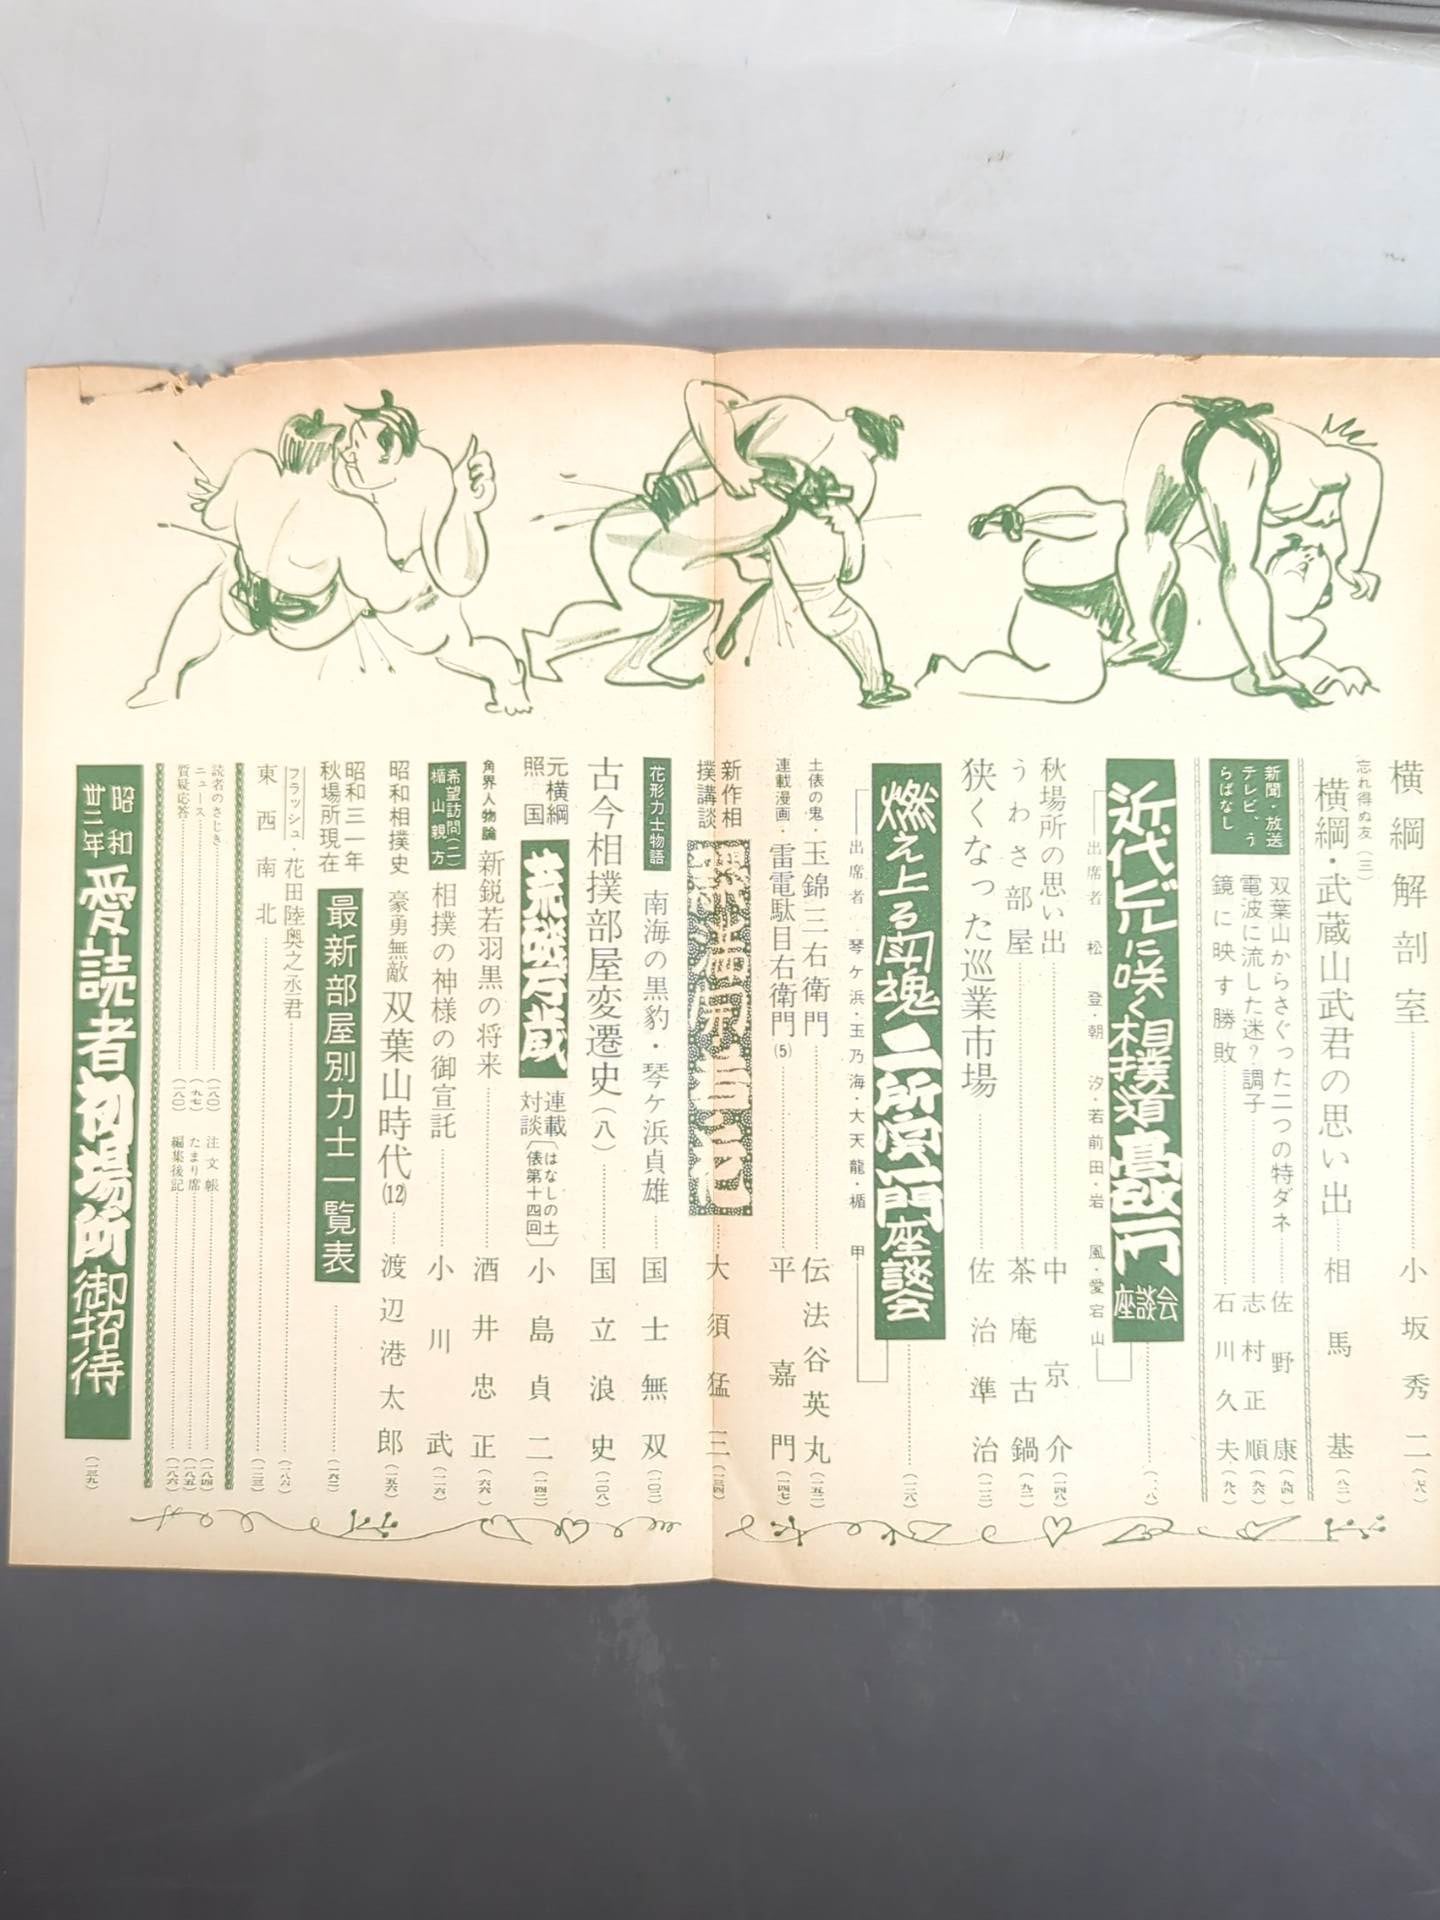 横綱解剖室……小坂秀二(七八)
忘れ得ぬ友(三)
横綱・武蔵山武君の思い出……相馬基(八二)
新聞・放送
テレビ、う
らばなし
双葉山からさぐった二つの特ダネ……佐野康(九四)
電波に流した迷?調子……志村正順(九六)
鏡に映す勝敗……石川久夫(九八)
近代ビルに咲く相撲道高砂一門座談会
出席者 松登・朝汐・若前田・岩風・愛宕山
秋場所の思い出……中京介(一四八)
うわさ部屋……茶庵古鍋(九二)
狭くなった巡業市場……佐治準治(一一二)
燃え上る闘魂 二所一門座談会……(一二八)
出席者 琴ケ浜・玉乃海・大天龍・楯甲
土俵の鬼・玉錦三右衛門……伝法谷英丸(一五二)
連載漫画・雷電駄目右衛門(5)……平嘉門(一四七)
新作相
撲講談
……大須猛三(一三四)
花形力士物語
南海の黒豹・琴ケ浜貞雄……国士無双(一〇二)
古今相撲部屋変遷史(八)……国立浪史(一〇八)
元横綱
照国
荒磯岩蔵
連載
対談
(はなしの土
俵第十四回)
小島貞二(一四二)
角界人物論
新鋭若羽黒の将来……酒井忠正(六六)
希望訪問(二)
楯山親方
相撲の神様の御宣託……小川武(一一六)
昭和相撲史
豪勇無敵 双葉山時代(12)……渡辺港太郎(一五六)
昭和三一年
秋場所現在
最新部屋別力士一覧表……(一六二)
フラッシュ・花田陸奥之丞君……(一八六)
東西南北……(一二三)
読者のさじき……(一八〇)
ニュース……(一九七)
質疑応答……(一八〇)
注文帳……(一八四)
たまり席……(一八五)
編集後記……(一八六)
昭和
卅二年
愛読者初場所御招待
(一三九)